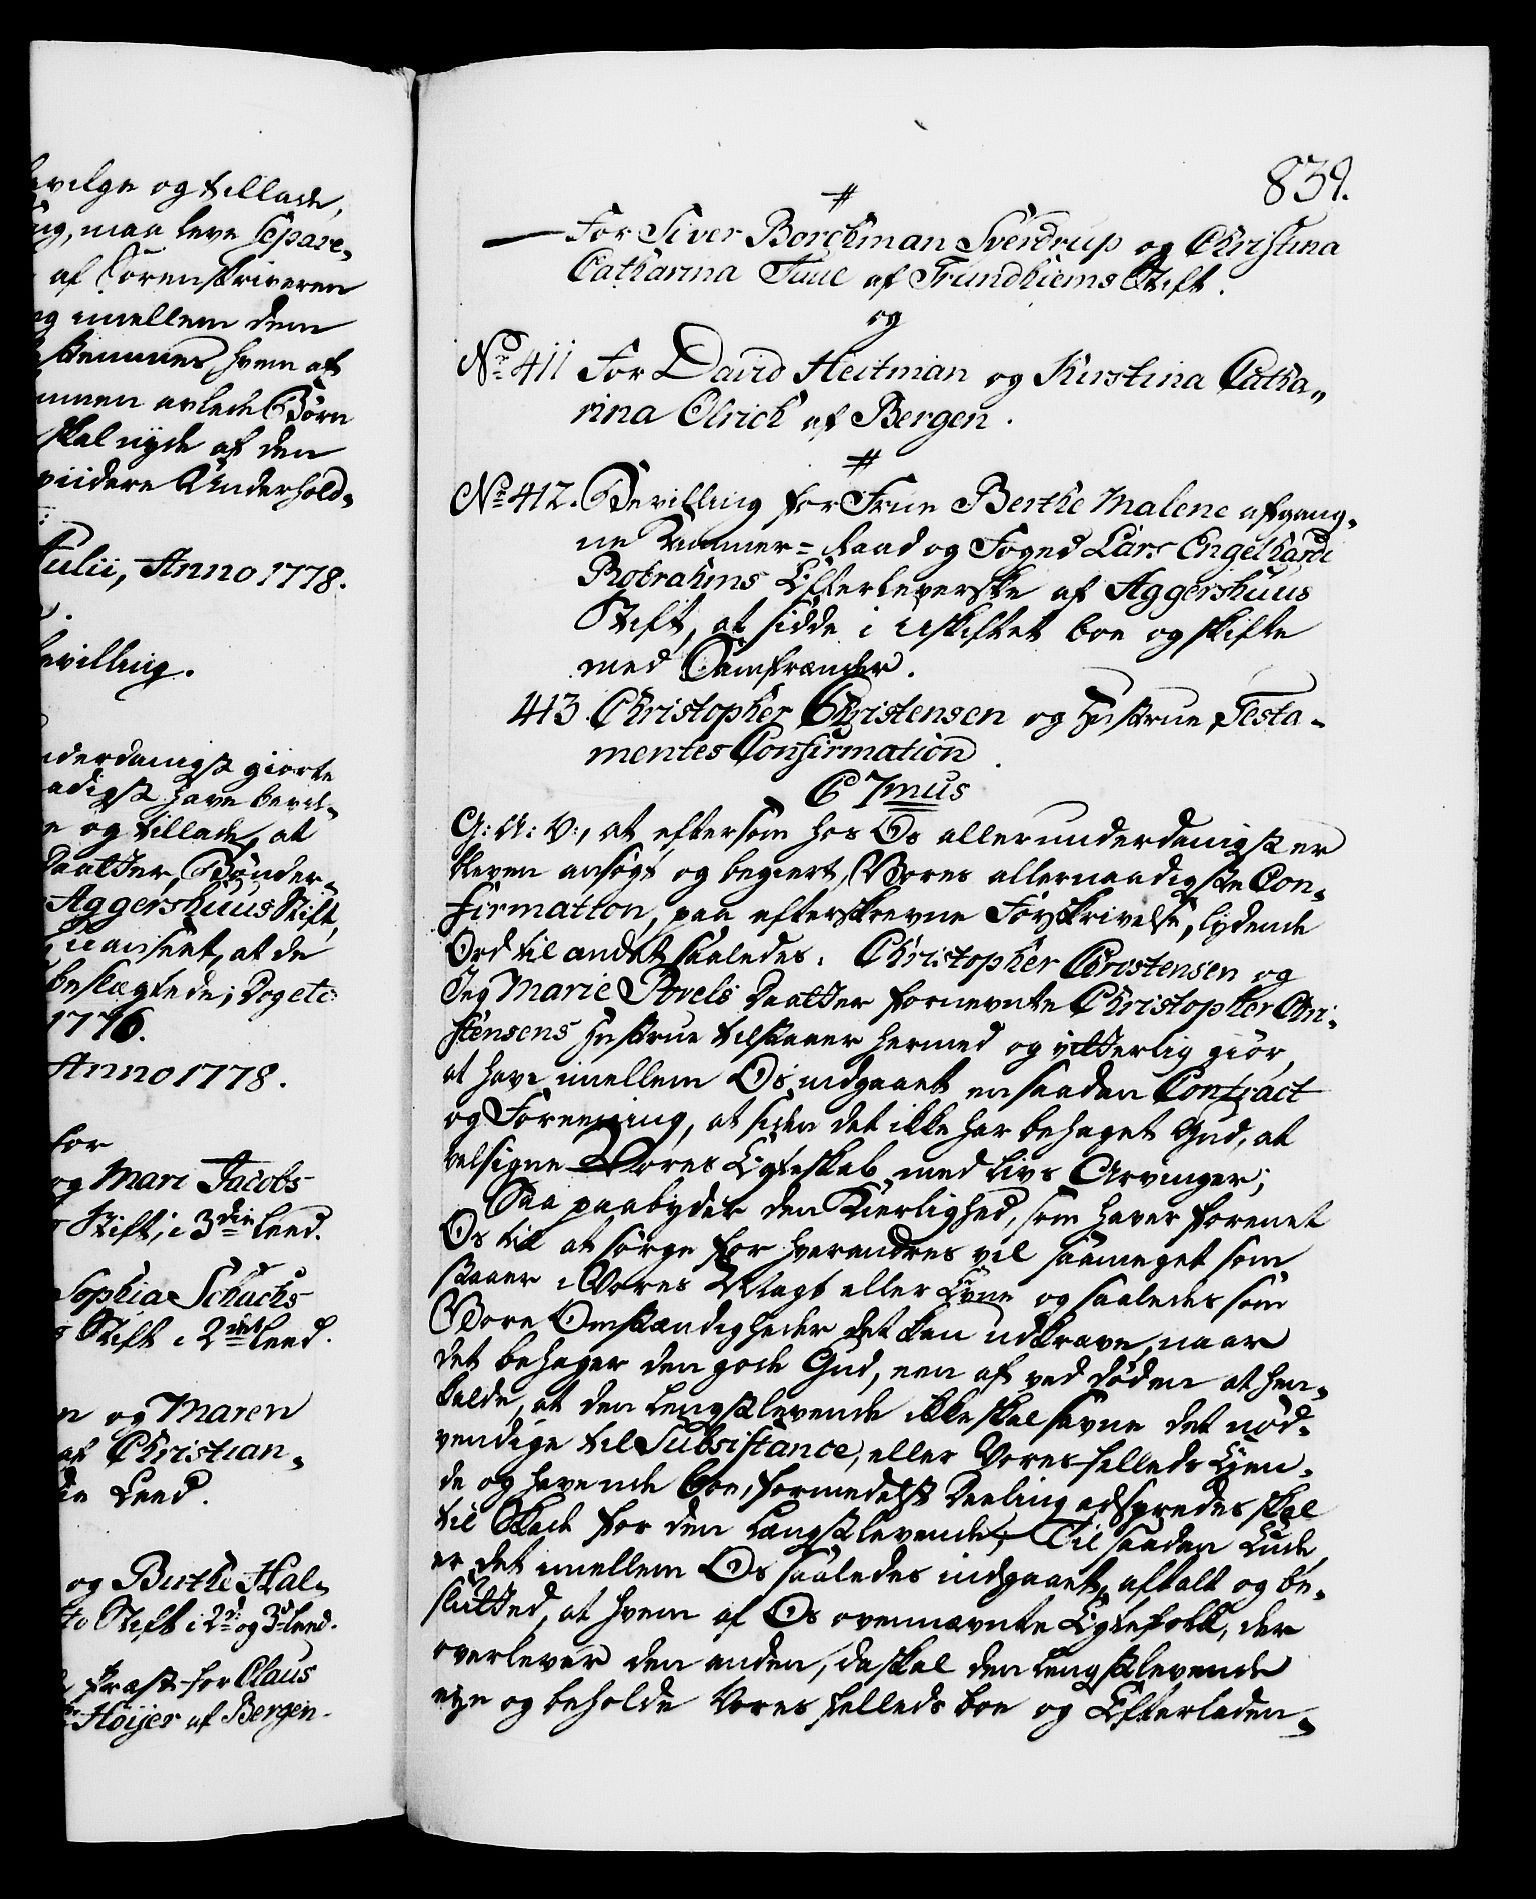 evilge og tillade,
ng, maa leve separe„
af Sorenskriveren
og imellem dem
kommes hvem af
ammen avlede Børn
skal nyde af den
viidere Underhold„
Julii, Anno 1778.
evilling.
nderdanigst giorte
aadigst have bevil„
e og tillade, at
Daatter, Bønder„
Aggershuus Stift,
uanseet, at de
beslægtede; Dog etc
1776.
Anno 1778.
for
og Mari Jacobs
Stift, i 3die Leed.
Sophia Schuchs
Stift i 2det Leed.
n og Maren
af Christian„
die Leed.
og Birthe Hal„
to Stift i 2d og 3d Leed.
Præst for Claus
Høijer af Bergen.
839.
#
— For Siver Borchman Sverdrup og Christina
Catharina Juul af Trundhiems Stift.
og
No 411 For David Heitman og Kirstina Catha„
rina Olrich af Bergen.
#
No 412. Bevilling for Frue Berthe Malene afgang„
ne Kammer=Raad og Foged Lars Engelhardt
Rotrahms Efterleverske af Aggershuus
Stift, at sidde i uskiftet boe og skifte
med Samfrænder.
413. Christopher Christensen og Hustrue Testa„
mentes Confirmation.
C 7mus
G: A: V:, at eftersom hos Os allerunderdanigst er
bleven ansøgt og begiert, Vores allernaadigste Con„
firmation, paa efterskrevne Forskrivelse, lydende
Ord til andet saaledes: Christopher Christensen og
Jeg Marie Povels Daatter fornevnte Christopher Chri„
stensens Hustrue tilstaaer hermed og vitterlig giør,
at have imellem Os indgaaet en saadan Contract
og Foreening, at siden det ikke har behaget Gud, at
velsigne Vores Egteskab med Livs Arvinger;
Saa paabyder den Kierlighed, som haver forenet
Os til at sørge for hverandres vel saameget som
staaer i Vores Magt eller Evne og saaledes som
Vore Omstændigheder det kan udkræve, naar
det behager den gode Gud, een af ved døden at hen„
kalde, at den Længstlevende ikke skal savne det nød„
vendige til Subsistance, eller Vores fælleds Eyen„
de og havende boe, formedelst Deeling adspredes skal
til Skade for den Længstlevende; Til saadan Ende
er det imellem Os saaledes indgaaet, aftalt og be„
sluttet, at hvem af Os ovennævnte Egtefolk, der
overlever den anden, da skal den Længstlevende
eye og beholde Vores fælleds boe og Efterladen„